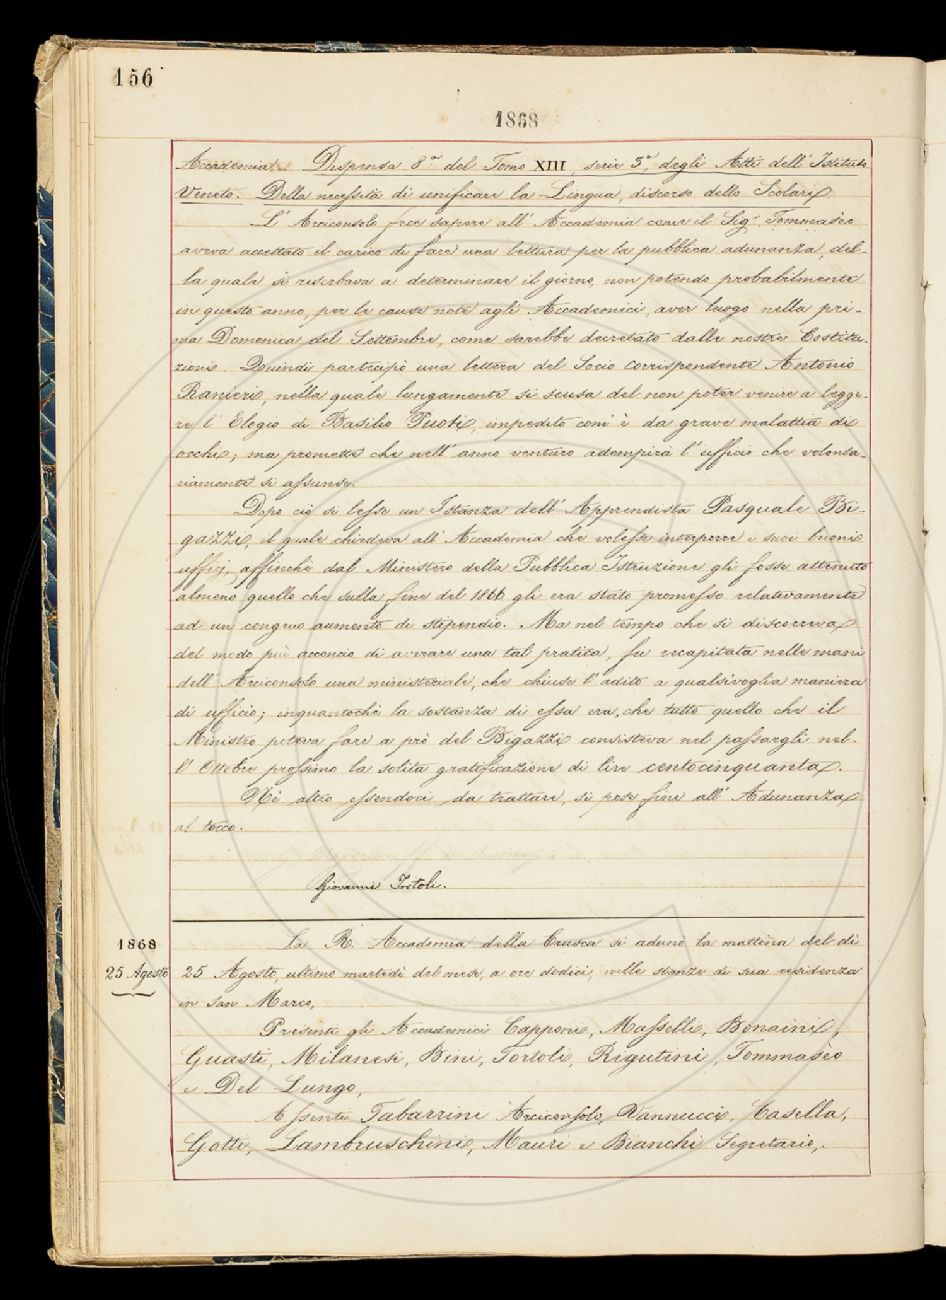 156
1868
Accademia. Dispensa 8ª del Tomo XIII, serie 3ª, degli Atti dell'Istituto
Veneto. Della necessità di unificare la Lingua, discorso dello Scolari.
L'Arciconsolo fece sapere all'Accademia come il Sig.r Tommasèo
aveva accettato il carico di fare una lettura per la pubblica adunanza, del-
la quale si riserbava a determinare il giorno, non potendo probabilmente
in questo anno, per le cause note agli Accademici, aver luogo nella pri-
ma Domenica del Settembre, come sarebbe decretato dalle nostre Costitu-
zioni. Quindi partecipò una lettera del Socio corrispondente Antonio
Ranieri, nella quale lungamente si scusa del non poter venire a legge-
re l'Elogio di Basilio Puoti, impedito com'è da grave malattia di
occhi; ma promette che nell'anno venturo adempirà l'ufficio che volonta-
riamente si assunse.
Dopo ciò si lesse un'Istanza dell'Apprendista Pasquale Bi-
gazzi, il quale chiedeva all'Accademia che volesse interporre i suoi buoni
uffizj, affinchè dal Ministero della Pubblica Istruzione gli fosse attenuto
almeno quello che sulla fine del 1866 gli era stato promesso relativamente
ad un congruo aumento di stipendio. Ma nel tempo che si discorreva
del modo più acconcio di avviare una tal pratica, fu recapitata nelle mani
dell'Arciconsolo una ministeriale, che chiuse l'adito a qualsivoglia maniera
di ufficio; inquantochè la sostanza di essa era, che tutto quello che il
Ministro poteva fare a prò del Bigazzi consisteva nel passargli nel-
l'Ottobre prossimo la solita gratificazione di lire centocinquanta.
Nè altro essendoci da trattare, si pose fine all'Adunanza
al tocco.
Giovanni Tortoli.
1868
25 Agosto
La R. Accademia della Crusca si adunò la mattina del dì
25 Agosto, ultimo martedì del mese, a ore dodici, nelle stanze di sua residenza
in san Marco,
Presenti gli Accademici Capponi, Masselli, Bonaini,
Guasti, Milanesi, Bini, Tortoli, Rigutini, Tommasèo
e Del Lungo,
Assenti Tabarrini Arciconsolo, Vannucci, Casella,
Gotti, Lambruschini, Mauri e Bianchi Segretario,.